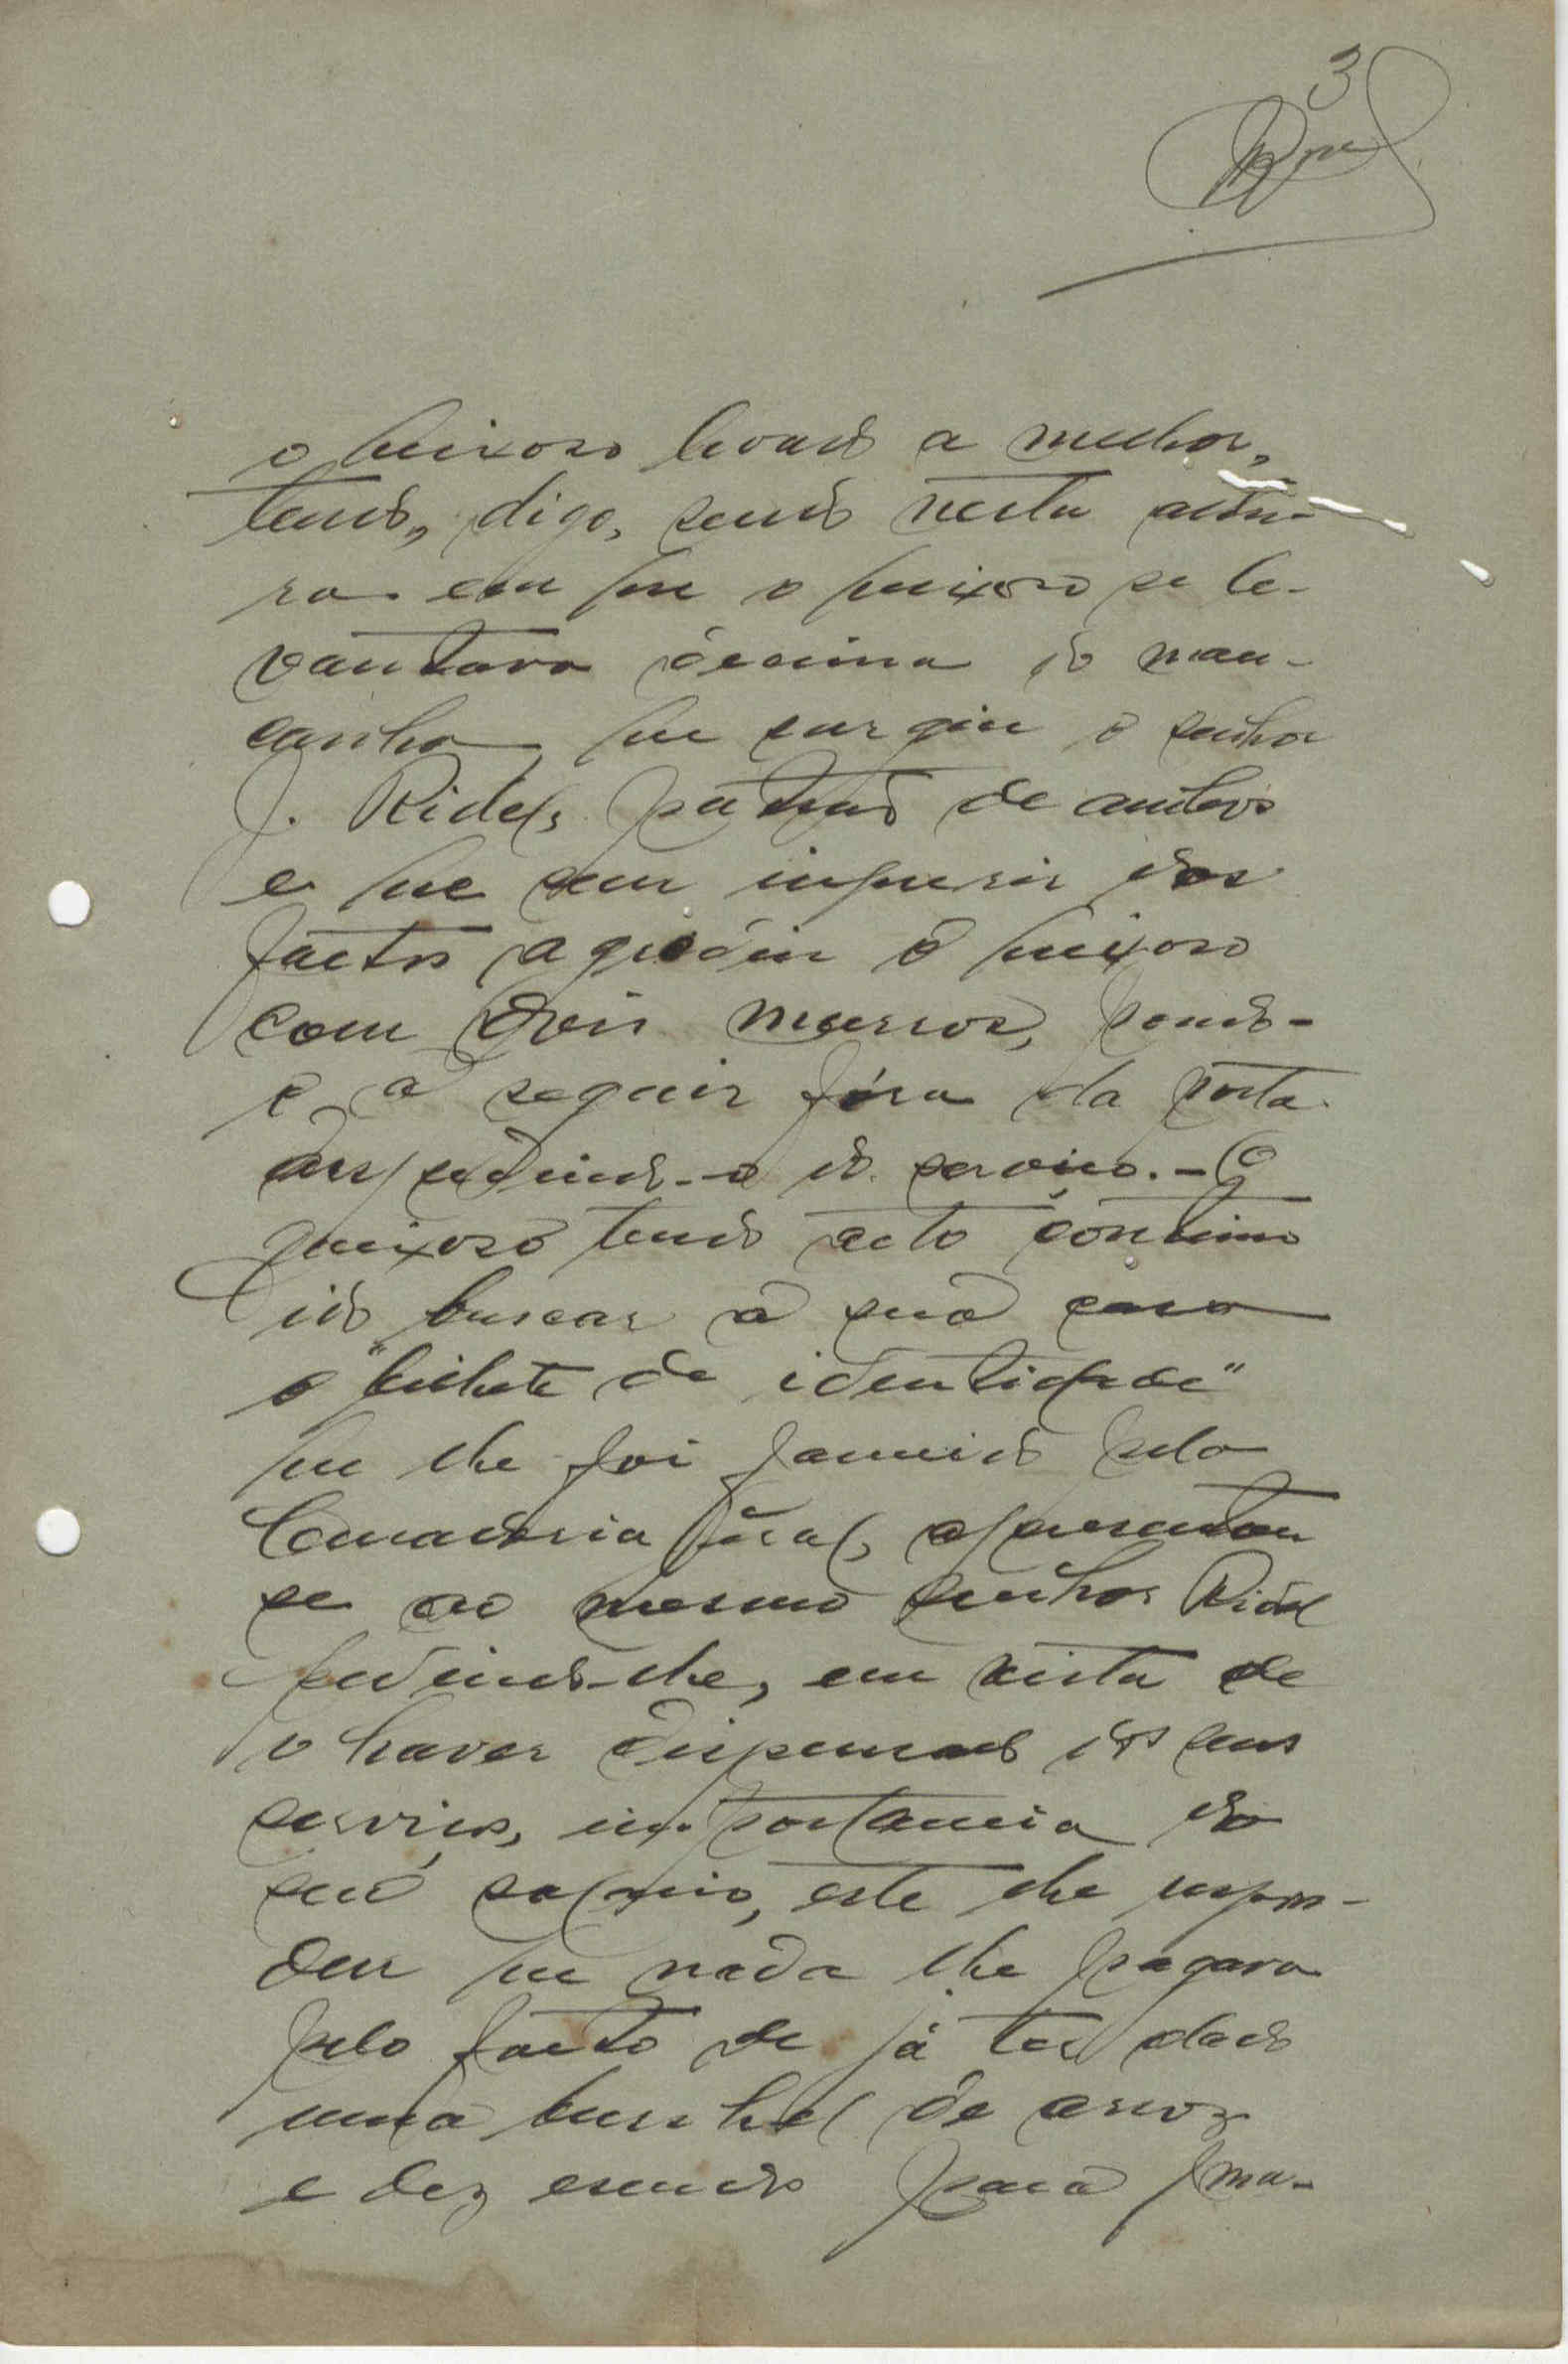 3
o queixoso levado a melhor,
tendo, digo, sendo nesta altu-
ra em que o queixoso se le-
vantava décima do man-
canha, que surgiu o senhor
J. Ridel, patrão de ambos
e que sem inquirir dos
factos agrediu o queixoso
com dois murros, pondo-
o a seguir fóra da porta
despedindo-o do serviço. - O
queixoso tendo acto continuo
ido buscar a sua casa
o "bilhete de identidade"
que lhe foi fornecido pela
Curadoria Geral, apresentou
se ao mesmo senhor Ridel
pedindo-lhe, em vista de
o haver dispensado dos seus
serviços, importancia do
seu salario, este lhe respon-
deu que nada lhe pagava
pelo facto de já ter dado
uma bushel de arroz
e dez escudos para